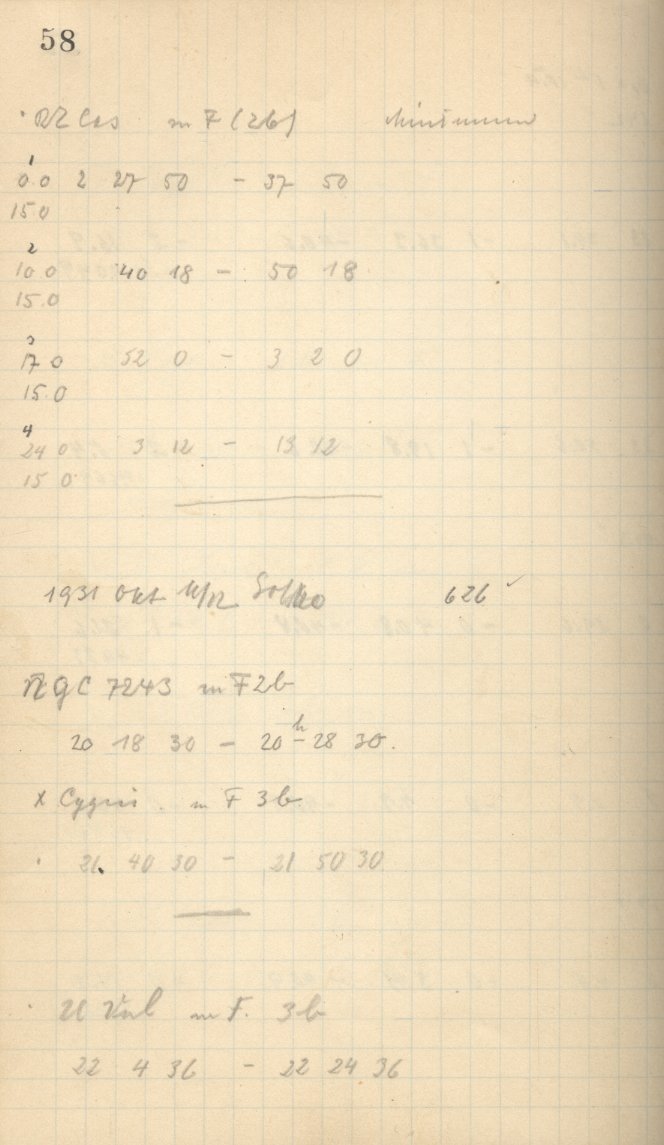 58
RZ Cas m F (2b) Minimum
1
0.0 2 27 50 - 37 50
15.0
2
10 0 40 18 - 50 18
15.0
3
17 0 52 0 - 3 2 0
15.0
4
24 0 3 12 - 13 12
15 0
1931 Okt 11/12 626 ✓
NGC 7243 m F 2b
20 18 30 - 20h 28 30.
X Cygni. m F 3b
21. 40 30 - 21 50 30
m F. 3b
22 4 36 - 22 24 36